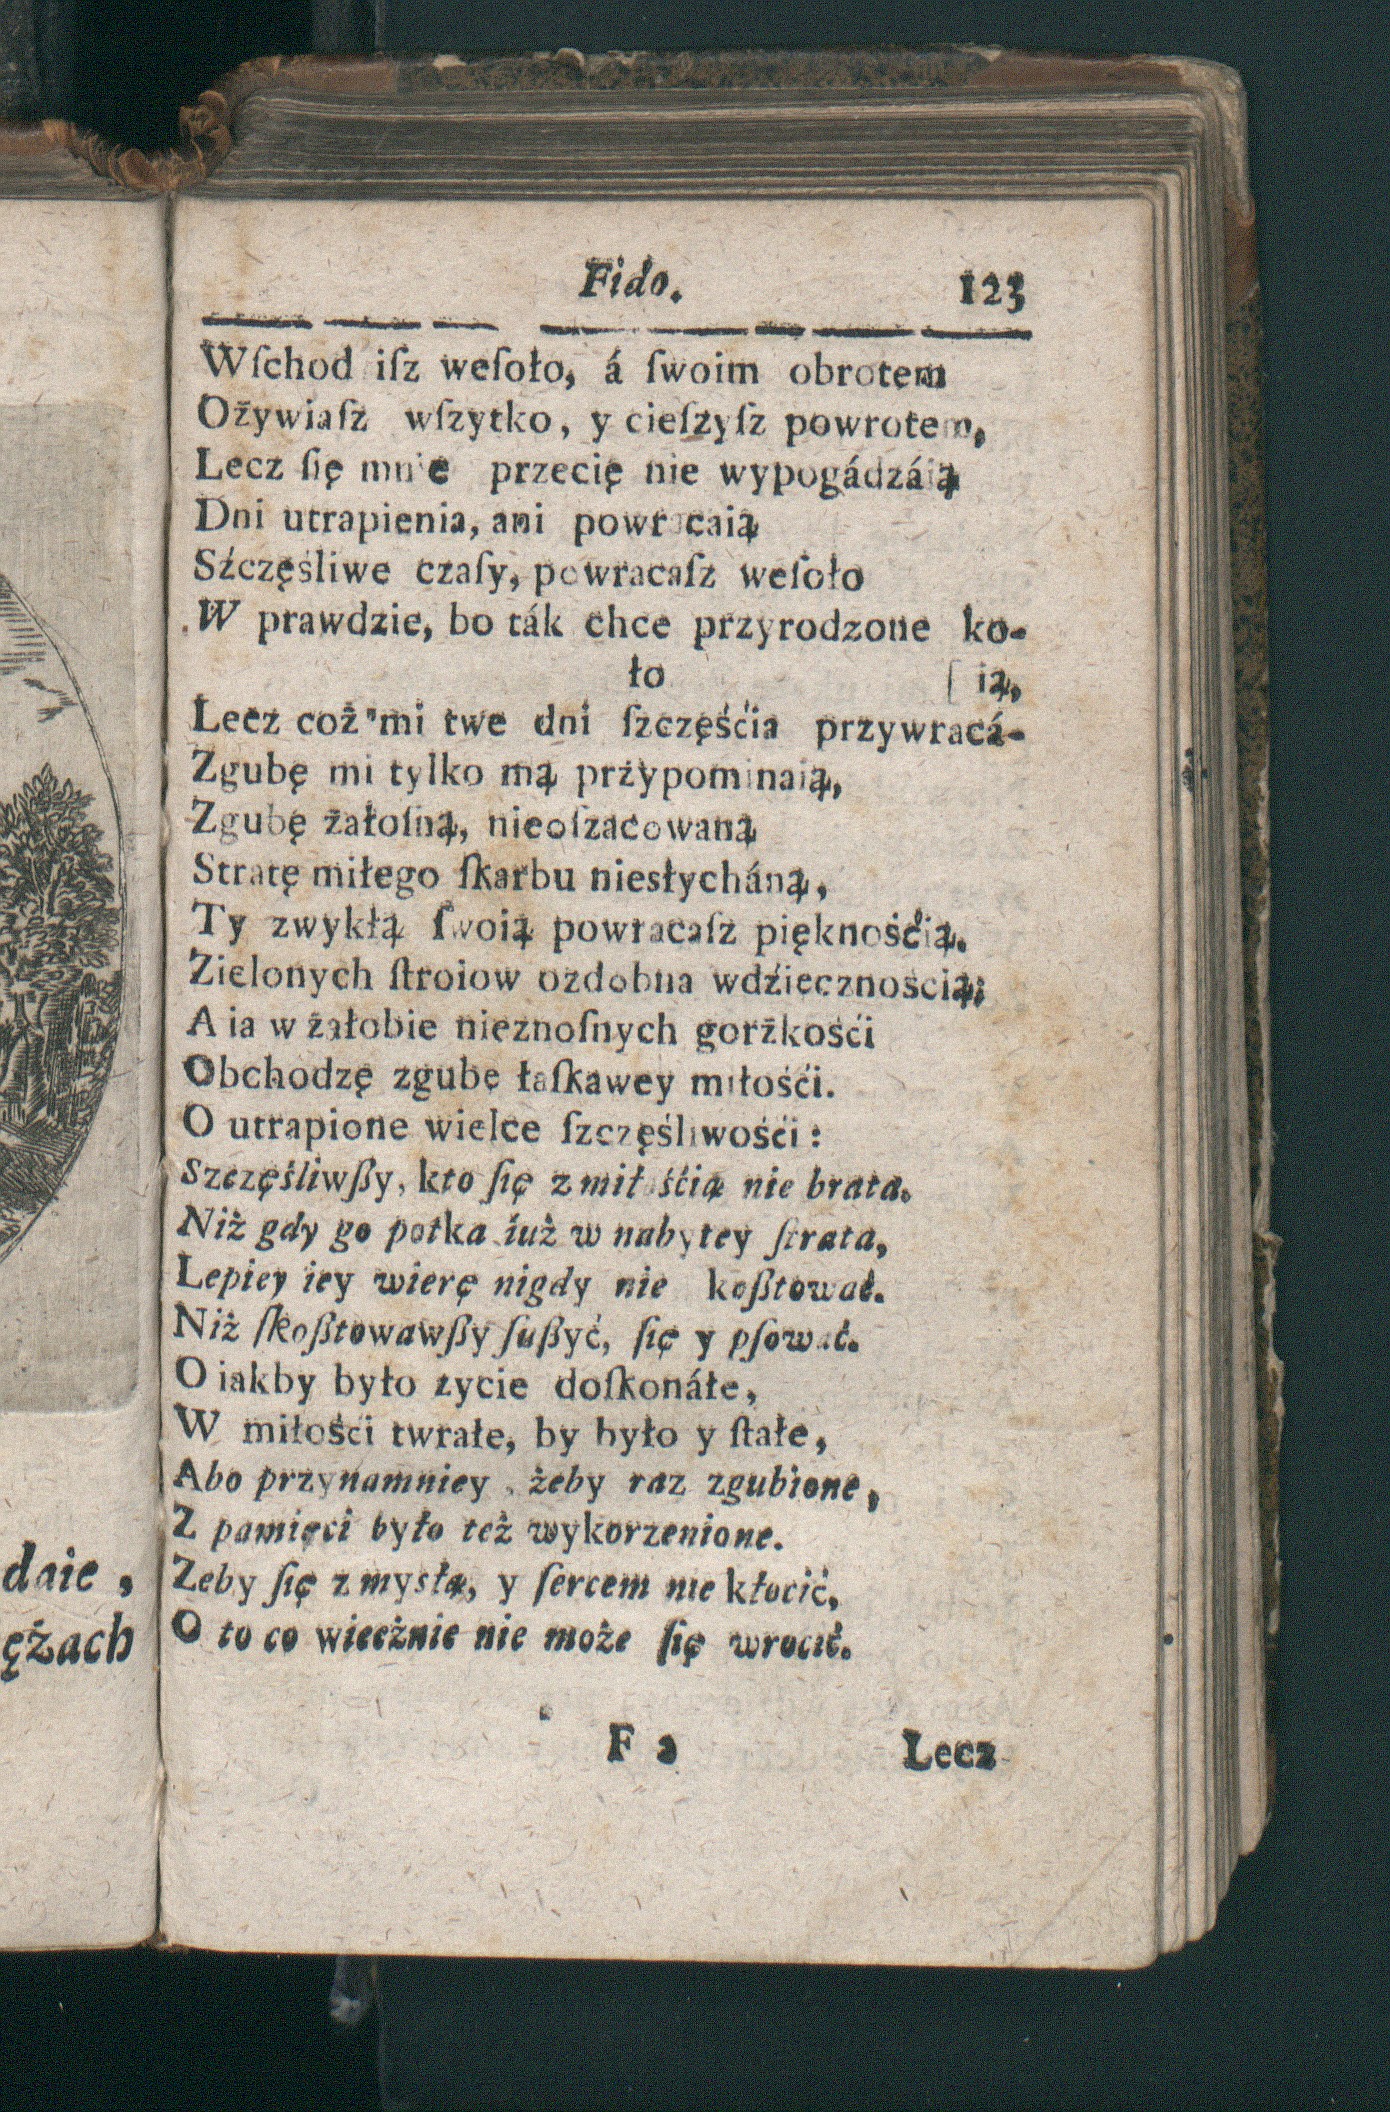 Fido. 123
Wſchod iſz weſoło, á ſwoim obrotem
Ożywiaſz wſzytko, y cieſzyſz powrotem,
Lecz ſię mnie przecię nie wypogádzáią
Dni utrapienia, ani powracaią
Sźczęśliwe czaſy, powracaſz weſoło
W prawdzie, bo ták chce przyrodzone ko-
ło [ ią,
Lecz coż mi twe dni ſzczęśćia przywracá-
Zgubę mi tylko mą przypominaią,
Zgubę żałoſną, nieoſzacowaną
Stratę miłego ſkarbu niesłycháną,
Ty zwykłą ſwoią powracaſz pięknośćią.
Zielonych ſtroiow ozdobna wdźięcznością;
A ia w żałobie nieznoſnych gorżkośći
Obchodzę zgubę łaſkawey miłośći.
O utrapione wielce ſzczęśliwośći:
Szczęśliwßy, kto ſię z miłośćią nie brata.
Niż gdy go potka iuż w nabytey ſtrata,
Lepiey iey wierę nigdy nie koßtować.
Niż ſkoßtowawßy ſußyć, ſię y pſować.
O iakby było zycie doſkonáłe,
W miłości twrałe, by było y ſtałe,
Abo przynamniey, żeby raz zgubione,
Z pamięci było też wykorzenione.
Zeby ſię z mysłą, y ſercem nie kłocić,
O to co wieeżnie nie może ſię wrocić.
F 2 Lecz
daie,
ężach